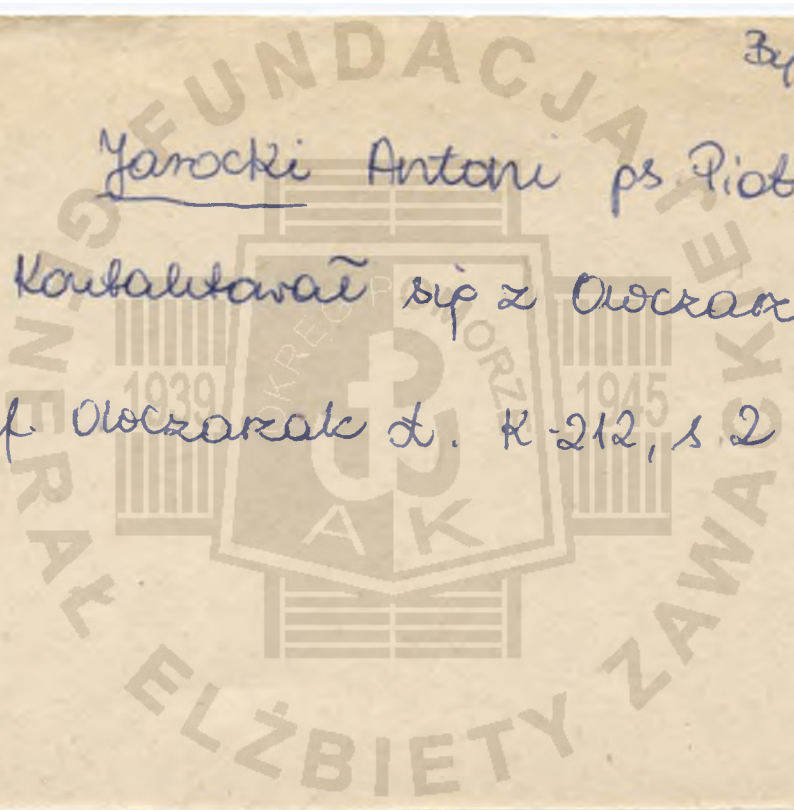 By
Jarocki Antoni ps. Piot
Kontaktował się z Owczarz
f. Owczarzak t. K-212, s 2
FUNDACJA
GENERAŁ ELŻBIETY ZAWACKIEJ
OKRĘG POMORZE
1939 1945
AK